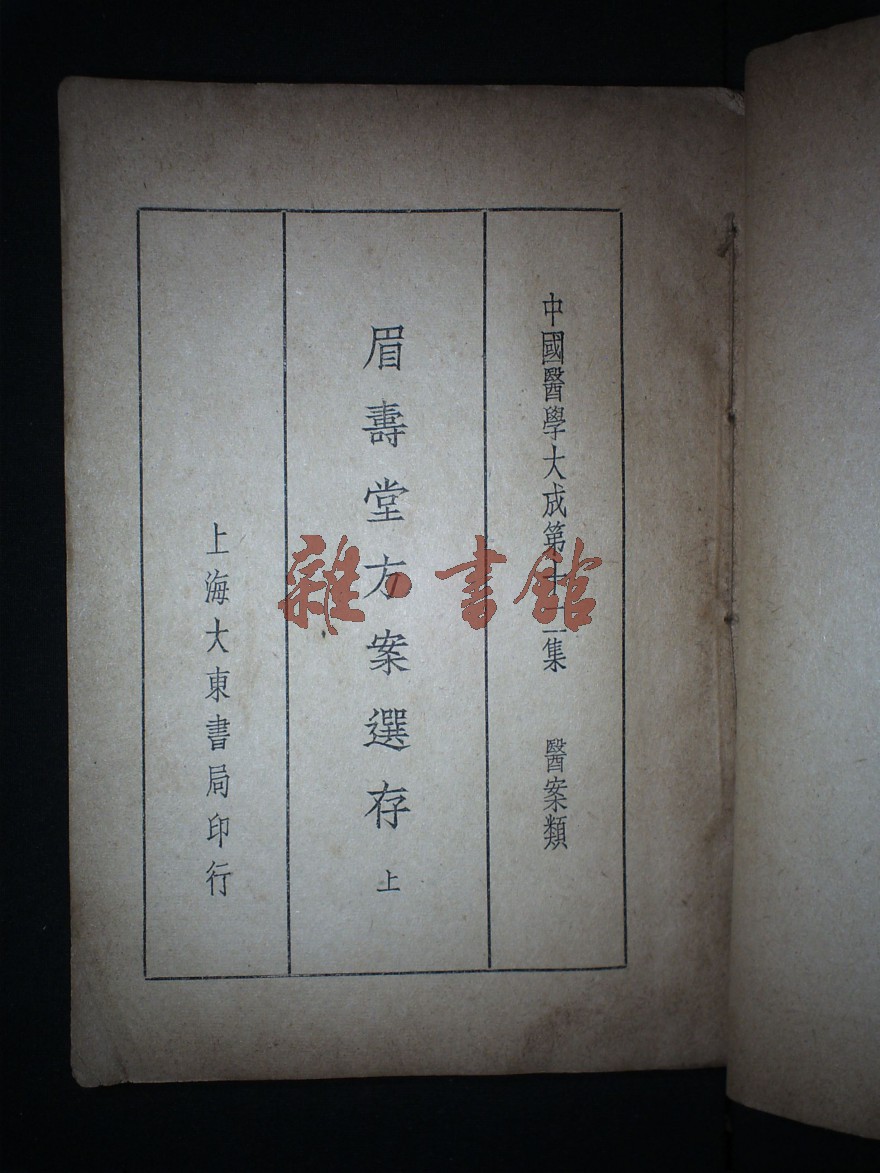 中國醫學大成第十二集 醫案類
眉壽堂方案選存 上
上海大東書局印行
雜·書館